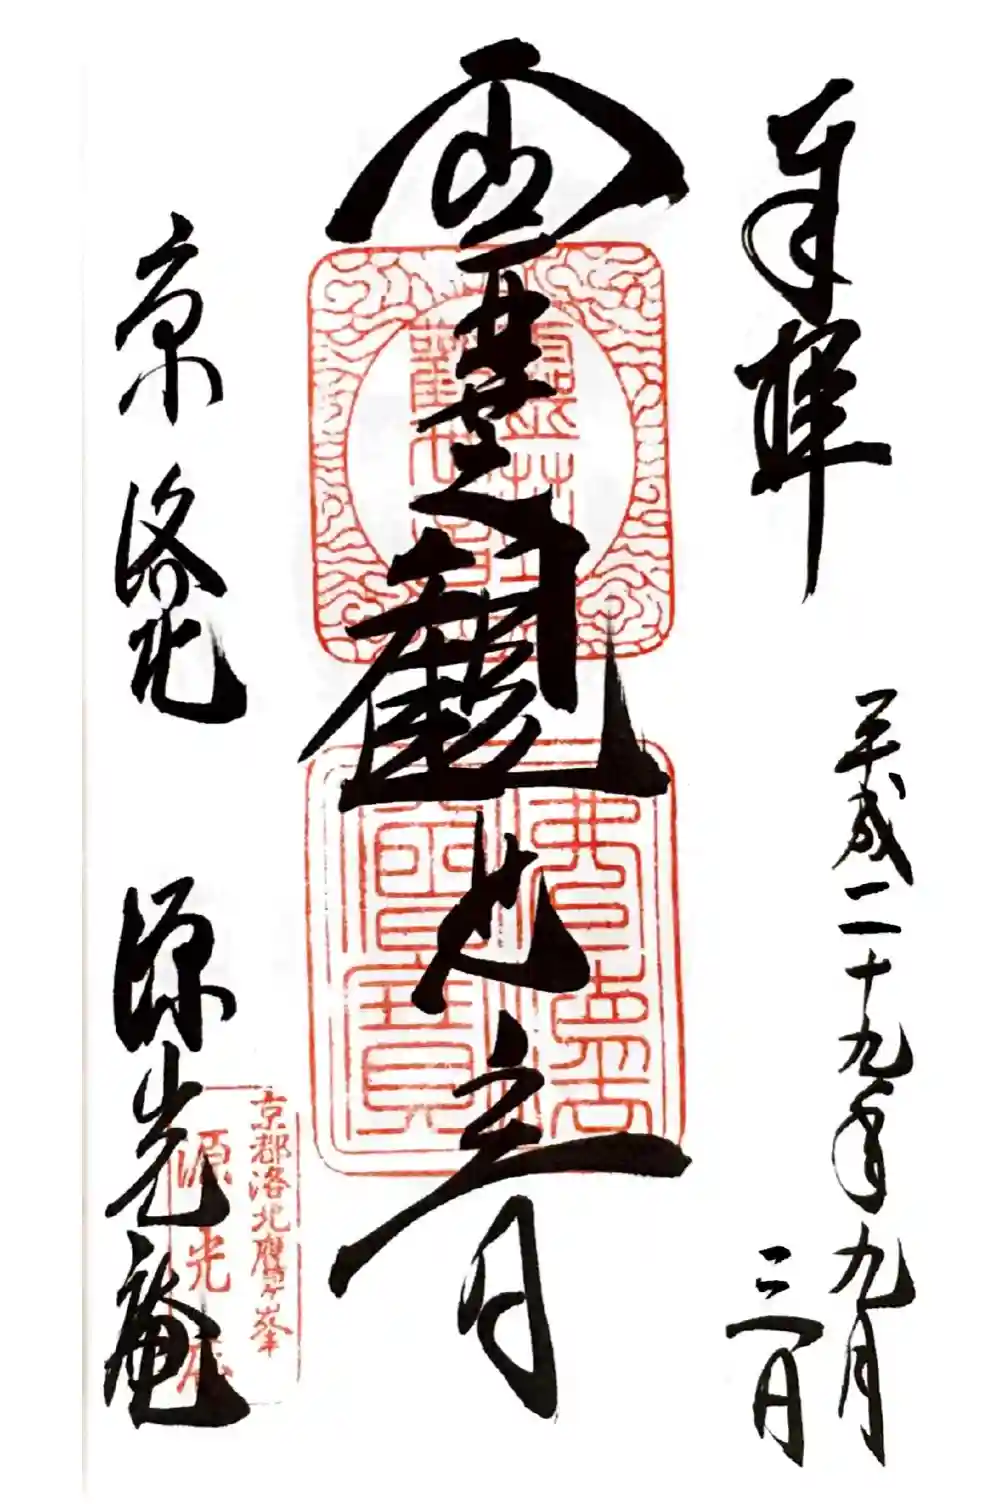 奉拝
平成二十九年九月
三日
霊芝観世音
京洛北 源光庵
京都洛北鷹ヶ峯
源光庵